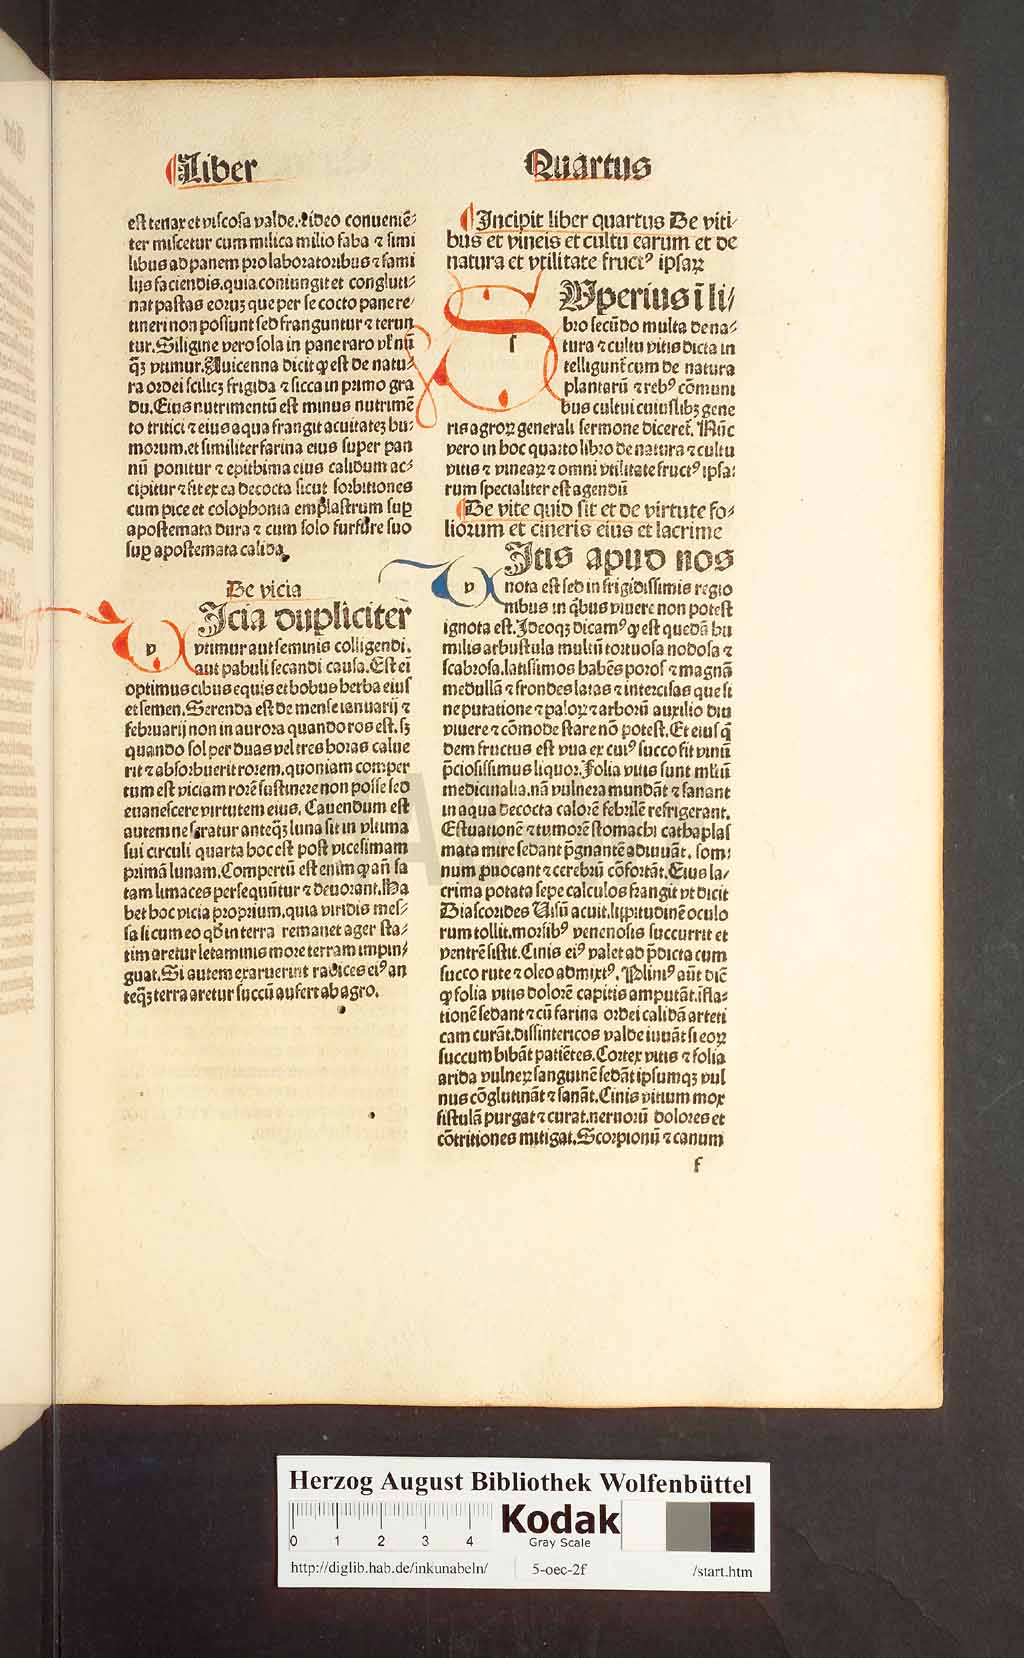 Liber
Quartus
est tenax et viscosa valde. Ideo conueniẽ-
ter miscetur cum milica milio faba ⁊ simi
libus ad panem pro laboratoribus ⁊ fami
lijs faciendis. quia coniungit et congluti-
nat pastas eoruꝫ que per se cocto pane re-
tineri non possunt sed franguntur ⁊ terun
tur. Siligine vero sola in pane raro vĺ nũ
qꝫ vtimur. Auicenna dicit ꝙ est de natu-
ra ordei scilicꝫ frigida ⁊ sicca in primo gra
du. Eius nutrimentũ est minus nutrimẽ
to tritici ⁊ eius aqua frangit acuitateꝫ hu-
morum. et similiter farina eius super pan
nũ ponitur ⁊ epithima eius calidum ac-
cipitur ⁊ fit ex ea decocta sicut sorbitiones
cum pice et colophonia emplastrum suꝑ
apostemata dura ⁊ cum solo furfure suo
suꝑ apostemata calida.
De vicia
v Icia dupliciter
vtimur aut seminis colligendi.
aut pabuli secandi causa. Est ei
optimus cibus equis et bobus herba eius
et semen. Serenda est de mense ianuarij ⁊
februarij non in aurora quando ros est. sꝫ
quando sol per duas vel tres horas calue
rit ⁊ absorbuerit rorem. quoniam comper
tum est viciam rorẽ sustinere non posse sed
euanescere virtutem eius. Cauendum est
autem ne seratur anteqꝫ luna sit in vltima
sui circuli quarta hoc est post vicesimam
primã lunam. Compertũ est enim ꝙ añ sa
tam limaces persequũtur ⁊ deuorant. Ha
bet hoc vicia proprium. quia viridis mes-
sa si cum eo qď in terra remanet ager sta-
tim aretur letaminis more terram impin-
guat. Si autem exaruerint radices eiꝰ an
teqꝫ terra aretur succũ aufert ab agro.
Incipit liber quartus De viti-
bus et vineis et cultu earum et de
natura et vtilitate fructꝰ ipsaꝝ
s Vperius ĩ li-
bro secũdo multa de na-
tura ⁊ cultu vitis dicta in
telligunt̃ cum de natura
plantarũ ⁊ rebꝰ cõmuni
bus cultui cuiuslibꝫ gene
ris agroꝝ generali sermone diceret̃. Nũc
vero in hoc quarto libro de natura ⁊ cultu
vitis ⁊ vineaꝝ ⁊ omni vtilitate fructꝰ ipsa-
rum specialiter est agendũ
De vite quid sit et de virtute fo-
liorum et cineris eius et lacrime
v Itis apud nos
nota est sed in frigidissimis regio
nibus in q̃bus viuere non potest
ignota est. Ideoqꝫ dicamꝰ ꝙ est quedã hu
milis arbustula multũ tortuosa nodosa ⁊
scabrosa. latissimos habẽs poros ⁊ magnã
medullã ⁊ frondes latas ⁊ intercisas que si
ne putatione ⁊ paloꝝ ⁊ arborũ auxilio diu
viuere ⁊ cõmode stare nõ potest. Et eius q̃
dem fructus est vua ex cuiꝰ succo fit vinũ
p̃ciosissimus liquor. Folia vitis sunt mĺtũ
medicinalia. nã vulnera mundãt ⁊ sanant
in aqua decocta calorẽ febrilẽ refrigerant.
Estuationẽ ⁊ tumorẽ stomachi cathaplas
mata mire sedant p̃gnantẽ adiuuãt. som-
num ꝓuocant ⁊ cerebrũ cõfortãt. Eius la-
crima potata sepe calculos frangit vt dicit
Diascorides Visũ acuit. lippitudinẽ oculo
rum tollit. morsibꝰ venenosis succurrit et
ventrẽ sistit. Cinis eiꝰ valet ad p̃dicta cum
succo rute ⁊ oleo admixtꝰ. Pliniꝰ aũt dič
ꝙ folia vitis dolorẽ capitis amputãt. ĩfla-
tionẽ sedant ⁊ cũ farina ordei calidã arteti
cam curãt. dissintericos valde iuuãt si eoꝝ
succum bibãt patiẽtes. Cortex vitis ⁊ folia
arida vulneꝝ sanguinẽ sedãt ipsumqꝫ vul
nus cõglutinãt ⁊ sanãt. Cinis vitium mox
fistulã purgat ⁊ curat. neruorũ dolores et
cõtritiones mitigat. Scorpionũ ⁊ canum
f
HAB
Herzog August Bibliothek Wolfenbüttel
0 1 2 3 4
Kodak
Gray Scale
http://diglib.hab.de/inkunabeln/ 5-oec-2f /start.htm